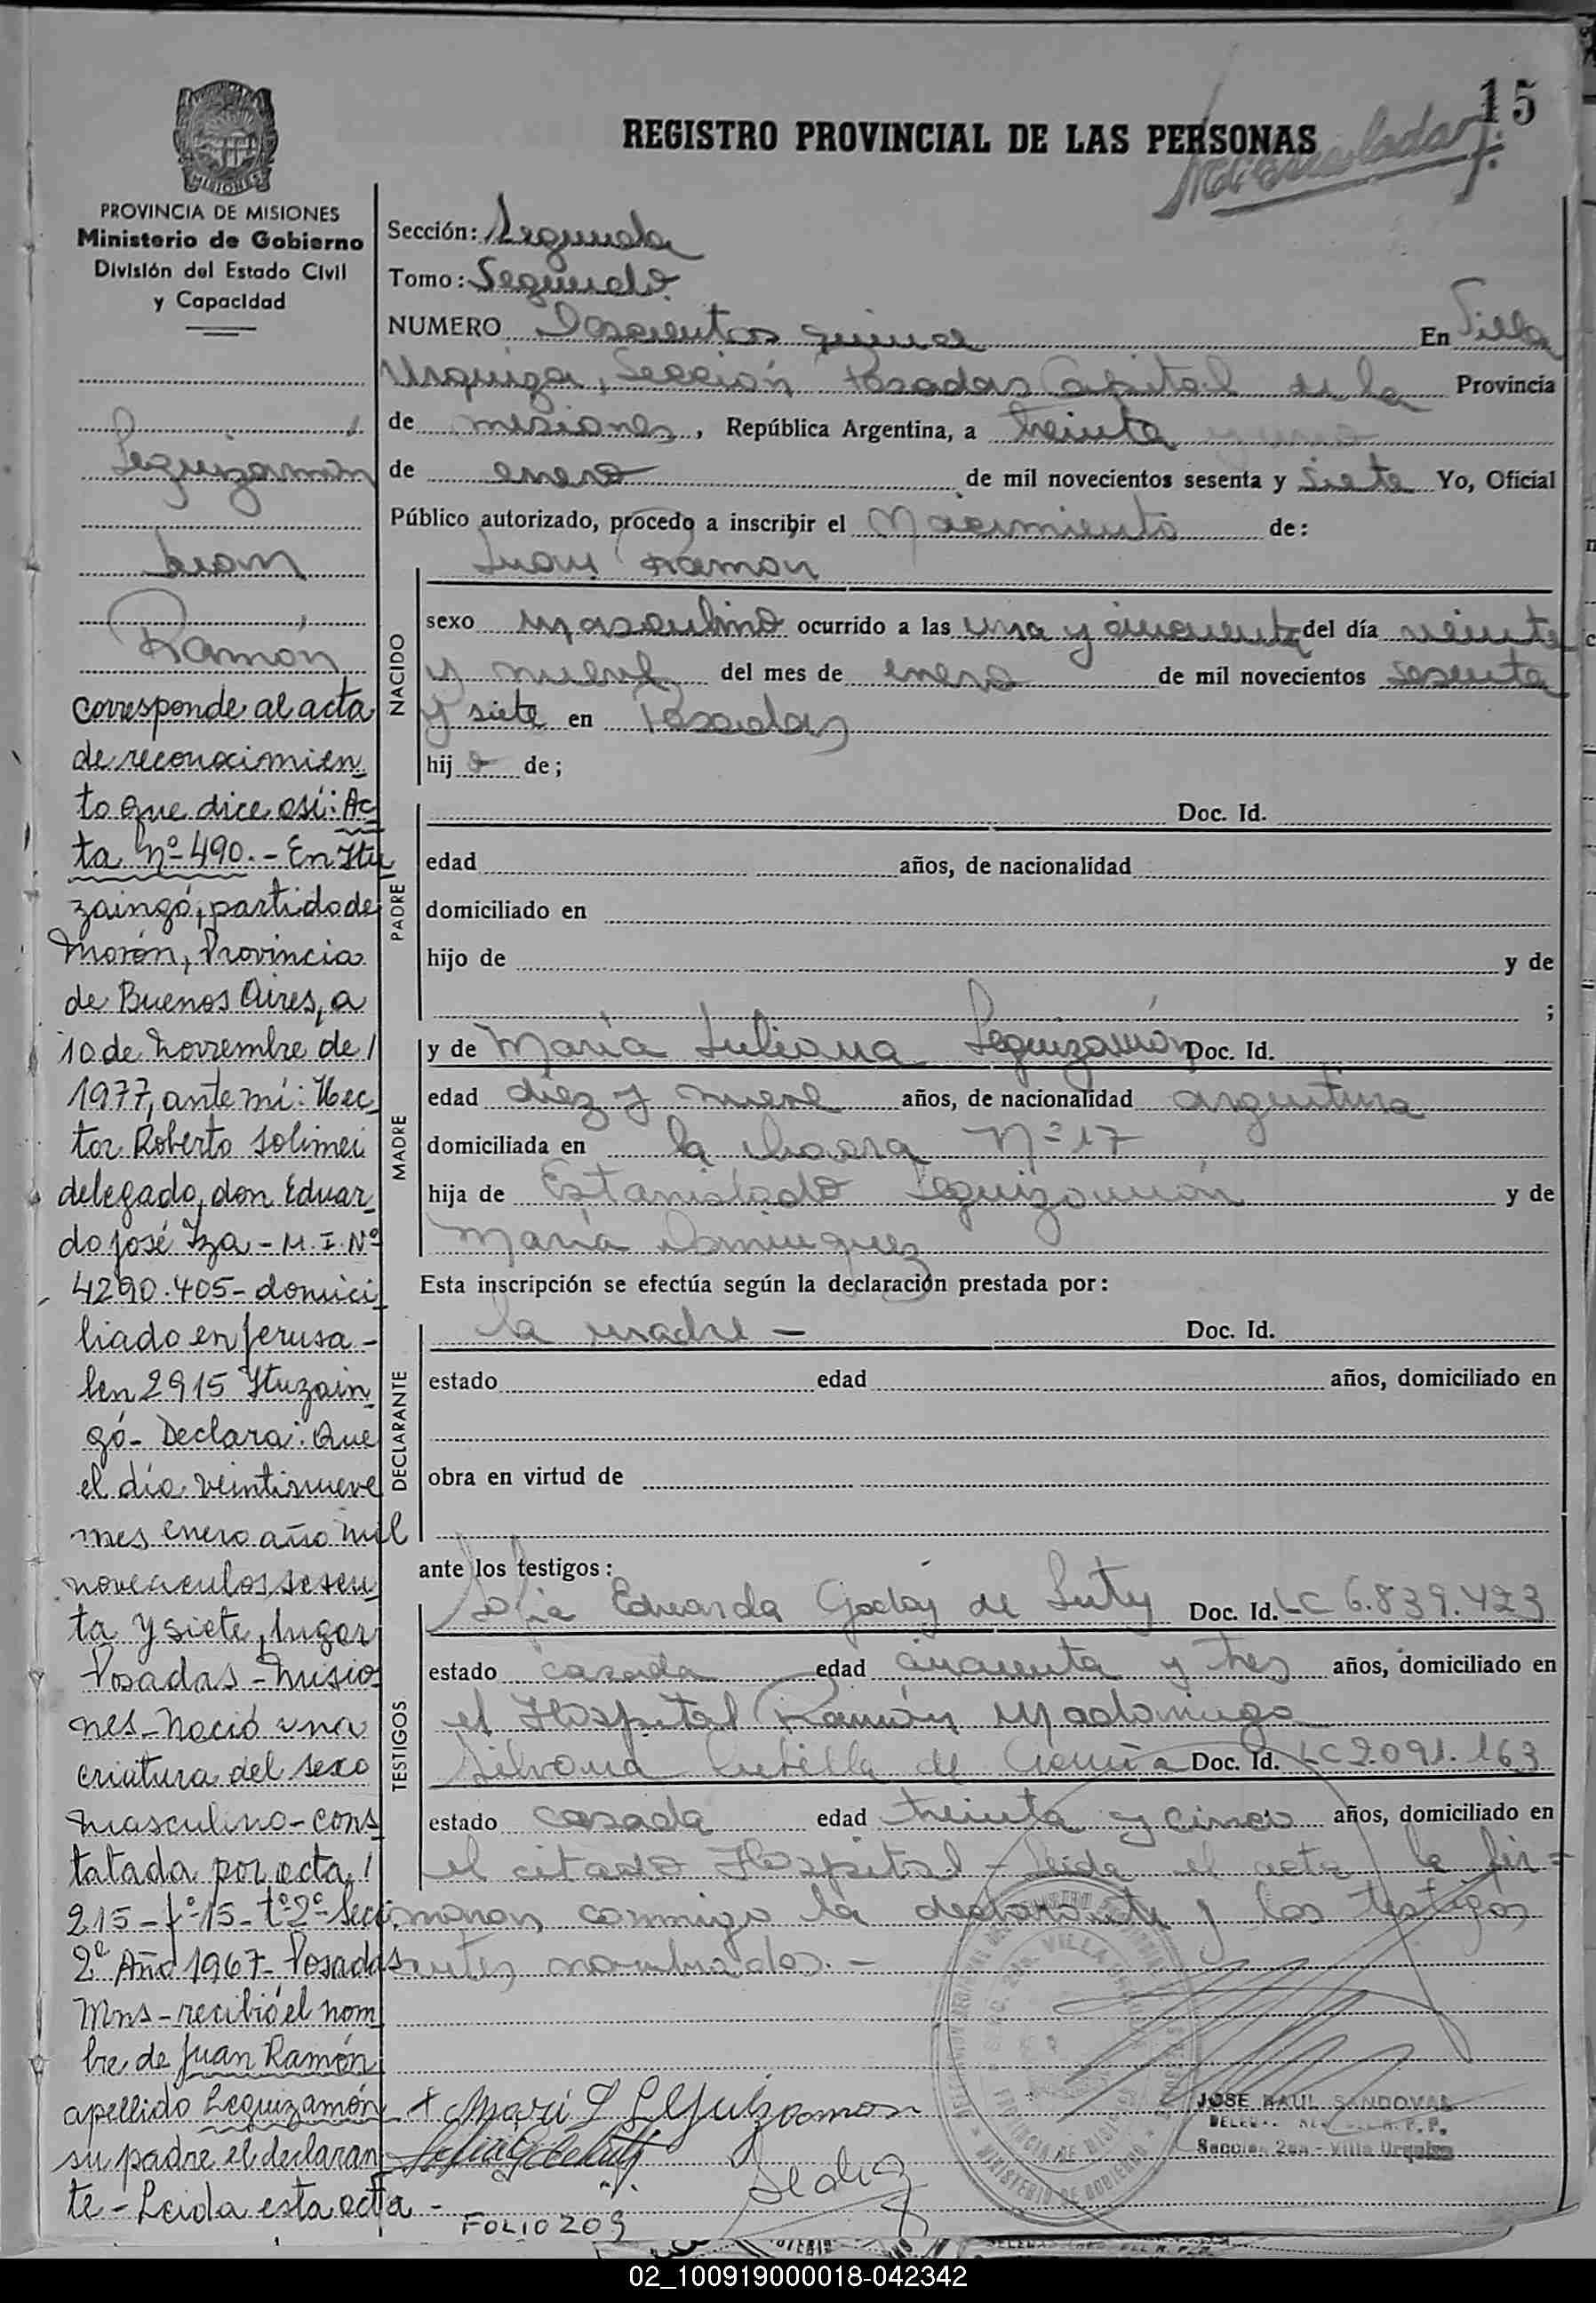 15
REGISTRO PROVINCIAL DE LAS PERSONAS
MISIONES
PROVINCIA DE MISIONES
Ministerio de Gobierno
División del Estado Civil
y Capacidad
Leguizamón
Juan
Ramón
corresponde al acta
de reconocimien
to que dice así: Ac
ta Nº 490.- En Itu
zaingó, partido de
Morón, Provincia
de Buenos Aires, a
10 de Noviembre de
1977, ante mí: Hec
tor Roberto Solimei
delegado, don Eduar
do José Iza - M.I. Nº
4290.405 - domici
liado en Jerusa-
len 2915 Ituzain
gó - Declara: Que
el día veintinueve
mes enero año mil
novecientos sesen
ta y siete, lugar
Posadas - Misio
nes - Nació una
criatura del sexo
masculino - cons
tatada por acta
215 - fº 15 - tº 2º - Secc.
2º Año 1967 - Posadas
Mns - recibió el nom
bre de Juan Ramón
apellido Leguizamón
su padre el declaran
te - Leida esta acta -
Sección: Segunda
Tomo: Segundo
NUMERO Doscientos quince En Villa
Urquiza, Sección Posadas Capital de la Provincia
de misiones, República Argentina, a treinta y uno
de enero de mil novecientos sesenta y siete Yo, Oficial
Público autorizado, procedo a inscribir el Nacimiento de:
Juan Ramon
NACIDO
sexo masculino ocurrido a las una y cincuenta del día veinte
y nueve del mes de enero de mil novecientos sesenta
y siete en Posadas
hijo de;
PADRE
Doc. Id.
edad años, de nacionalidad
domiciliado en
hijo de y de
;
MADRE
y de María Juliana Leguizamón Doc. Id.
edad diez y nueve años, de nacionalidad argentina
domiciliada en la chacra Nº 17
hija de Estanislado Leguizamón y de
María Dominguez
Esta inscripción se efectúa según la declaración prestada por:
DECLARANTE
la madre - Doc. Id.
estado edad años, domiciliado en
obra en virtud de
ante los testigos:
TESTIGOS
Sofia Eduarda Godoy de Doc. Id. LC 6.839.423
estado casada edad cuarenta y tres años, domiciliado en
el Hospital Ramón Madariaga
Silvana de Doc. Id. LC 2.091.163
estado casada edad treinta y cinco años, domiciliado en
el citado Hospital - Leida el acta la fir=
maron conmigo la declarante y los testigos
antes nombrados. -
VILLA
PROVINCIA DE MISIONES
MINISTERIO DE GOBIERNO
JOSE RAUL SANDOVAL
Seccion 2da. - Villa Urquiza
FOLIO 209
02_100919000018-042342